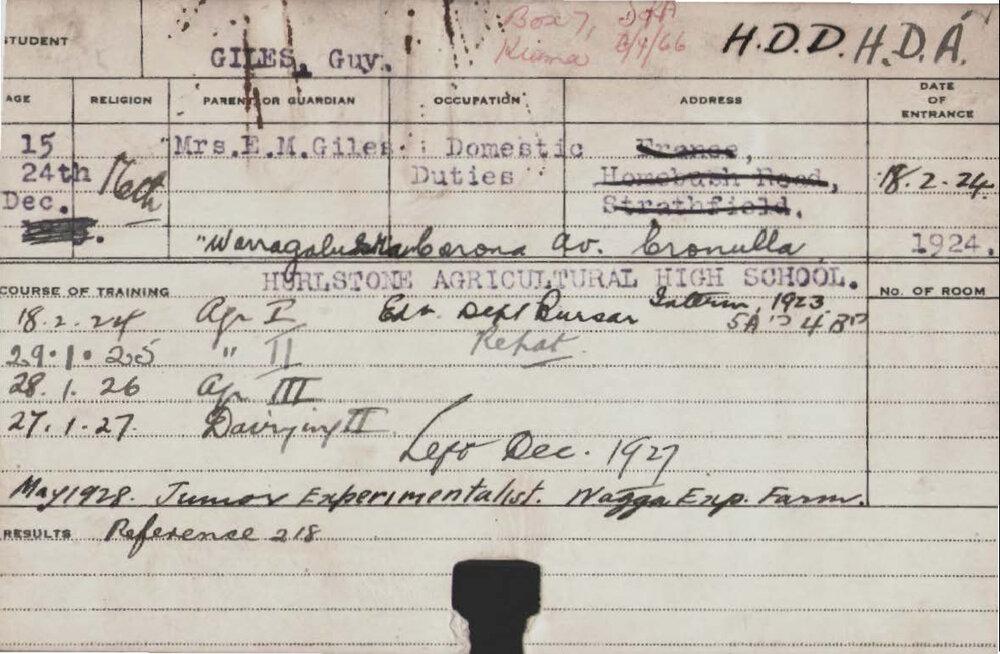 Box 7,
Kiama 2/4/66
H.D.D. H.D.A.
STUDENT
GILES, Guy.
AGE RELIGION PARENT OR GUARDIAN OCCUPATION ADDRESS DATE OF ENTRANCE
15 Mrs.E.M.Giles Domestic France,
24th Meth Duties Homebush Road, 18.2.24
Dec. Strathfield.
Corona Av. Cronulla 1924.
HURLSTONE AGRICULTURAL HIGH SCHOOL.
COURSE OF TRAINING No. OF ROOM
18.2.24 Agr I Edn. Dept Bursar Interm, 1923
5A's 4B's
29.1.25 " II Repat.
28.1.26 Agr III
27.1.27. Dairying II
Left Dec. 1927
May 1928. Junior Experimentalist. Wagga Exp. Farm.
RESULTS Reference 218